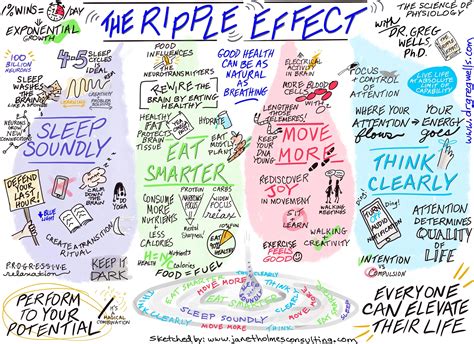 1% WINS = DAY
EXPONENTIAL
GROWTH
THE RIPPLE EFFECT
THE SCIENCE of
PHYSIOLOGY
with
DR. GREG
WELLS,
PhD
www.drgregwells.com
100
BILLION
NEURONS
4-5
SLEEP
CYCLES
IDEAL
SLEEP
WASHES
THE BRAIN
LIKE A
SPONGE
LEARNING
CREATIVITY
PROBLEM
SOLVING
YOU CAN
GROW
NEW
NEURONS
SLEEP
SOUNDLY
DEFEND
YOUR
LAST
HOUR!
BLUE
LIGHT
CALM
CREATE A TRANSITION
RITUAL
PROGRESSIVE
relaxation
KEEP IT
DARK
FOOD
INFLUENCES
THE
NEUROTRANSMITTERS
REWIRE
THE BRAIN
BY EATING
HEALTHY
HEALTHY
FAT
PROTECTS
BRAIN
TISSUE
EAT
MOSTLY
PLANTS
EAT
SMARTER
CONSUME
MORE
NUTRIENTS
CALORIES
PROTEIN
NARROW
FOCUS
CARBS
WIDEN
FOCUS
relaxes
NUTRIENTS
CALORIES
FOOD = FUEL
GOOD HEALTH
CAN BE AS
NATURAL
AS
BREATHING
ELECTRICAL
ACTIVITY
IN BRAIN
MORE
BLOOD
CELLS
LENGTHEN
THOSE
TELOMERES!
KEEP
YOUR
DNA
YOUNG
MOVE
MORE
REDISCOVER
JOY
IN MOVEMENT
WALKING
MEETINGS
LEARNING
WALKING
CREATIVITY
EXERCISE
FEELS
GOOD
FOCUS &
CONTROL
OF
ATTENTION
LIVE LIFE
AT ABSOLUTE
LIMIT OF
CAPABILITY
WHERE YOUR
ATTENTION
ENERGY
flows
goes
THINK
CLEARLY
TURN OFF
AUDIO
NOTIFICATIONS
ATTENTION
DETERMINES
QUALITY
OF
LIFE
INTENTION
vs
COMPULSION
PERFORM
TO YOUR
POTENTIAL
MAGICAL
COMBINATION
THINK CLEARLY
MOVE MORE
EAT SMARTER
SLEEP
SOUNDLY
EAT SMARTER
MOVE MORE
THINK
CLEARLY
SLEEP SOUNDLY
EAT SMARTER
MOVE MORE
THINK CLEARLY
EVERYONE
CAN ELEVATE
THEIR LIFE
sketched by: www.janetholmesconsulting.com